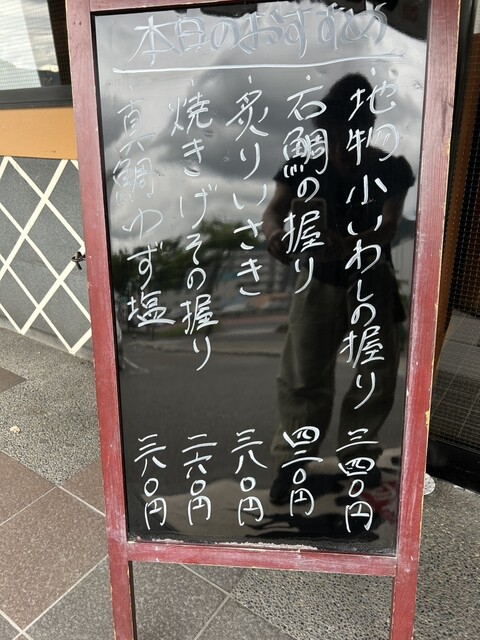 本日のおすすめ
・地物小いわしの握り 三四〇円
・石鯛の握り 四二〇円
・炙りいさき 三八〇円
・焼きげその握り 二六〇円
・真鯛ゆず塩 三八〇円